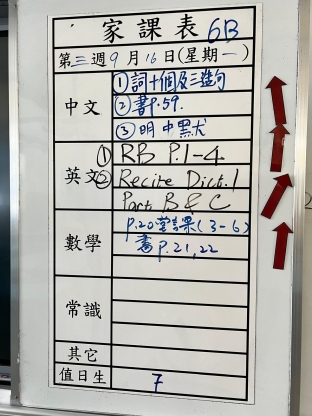 家課表 6B
第三週9月16日(星期一)
中文
①詞十個及三造句
②書P.59.
③明中默犬
英文
① RB P.1-4
② Recite Dict.1
Part B & C
數學
P.20堂課(3-6)
書P.21,22
常識
其它
值日生 7